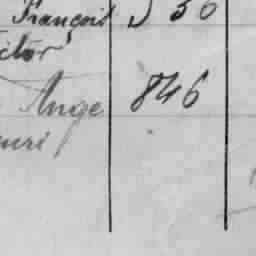 François 536
ictor
Ange 846
enri